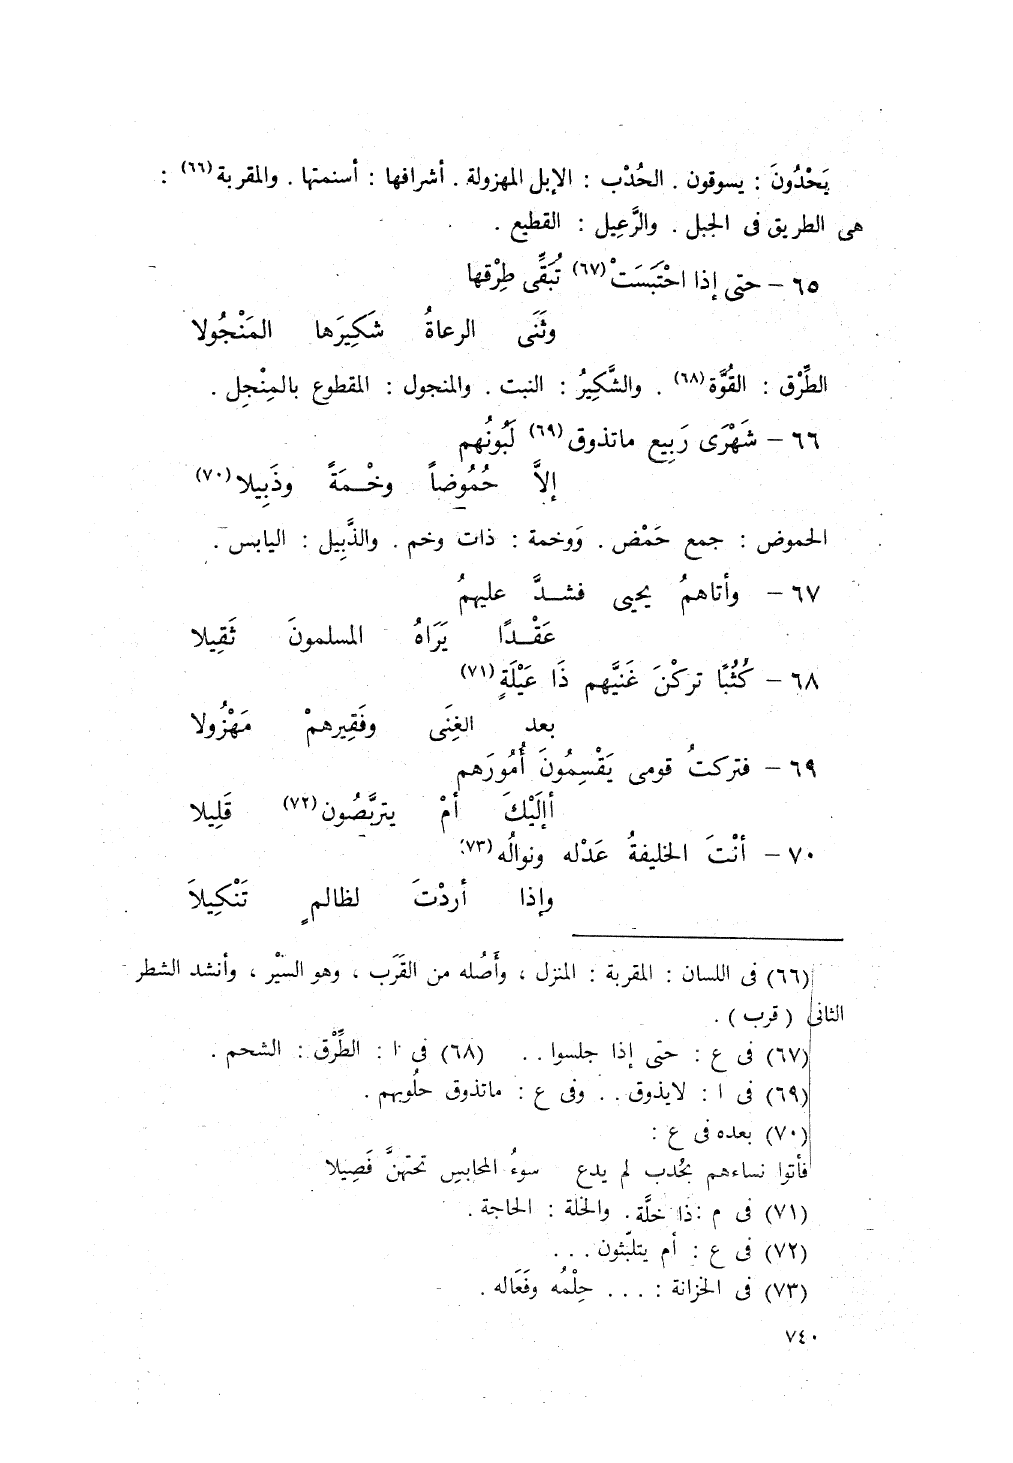 يَحْدُونَ : يسوقون . الحُدْب : الإبل المهزولة . أشرافها : أسنمتها . والمقربة (٦٦) :
هى الطريق فى الجبل . والرَّعِيل : القطيع .
٦٥ – حتى إذا احْتَبَسَتْ (٦٧) تُبَقَّى طِرْقها
وثَنَى الرعاةُ شَكِيرَها المَنْجُولا
الطِّرْق : القُوَّة (٦٨) . والشَّكِيرُ : النبت . والمنجول : المقطوع بالمِنْجِل .
٦٦ – شَهْرَى رَبِيع ماتذوق (٦٩) لَبُونُهم
إلاَّ حُمُوضاً وخْمَةً وذَبِيلا (٧٠)
الحموض : جمع حَمْض . وَوخمة : ذات وخم . والذَّبِيل : اليابس .
٦٧ – وأتاهمُ يحيى فشدَّ عليهمُ
عَقْدًا يَرَاهُ المسلمونَ ثَقِيلا
٦٨ – كُتُبًا تركْنَ غَنَيَّهم ذَا عَيْلَةٍ (٧١)
بعد الغِنَى وفَقِيرهمْ مَهْزُولا
٦٩ – فتركتُ قومى يَقْسِمُونَ أُمُورَهم
أإلَيْكَ أمْ يتربَّصُون (٧٢) قَلِيلا
٧٠ – أنْتَ الخليفةُ عَدْله ونوالُه (٧٣)
وإذا أردْتَ لظالمٍ تَنْكِيلاَ
(٦٦) فى اللسان : المقربة : المنزل ، وأَصُله من القَرَب ، وهو السَيْر ، وأنشد الشطر
الثانى ( قرب ) .
(٦٧) فى ع : حتى إذا جلسوا . . (٦٨) فى ا : الطِّرْق : الشحم .
(٦٩) فى ا : لايذوق . . وفى ع : ماتذوق حلُوبهم .
(٧٠) بعده فى ع :
فأتوا نساءهم بحُدب لم يدع سوءُ المحابسِ تحتهنَّ فَصِيلا
(٧١) فى م : ذا خلَّة . والخلة : الحاجة .
(٧٢) فى ع : أم يتلبّثون . . .
(٧٣) فى الخزانة : . . . حِلْمُه وفَعَاله .
٧٤٠